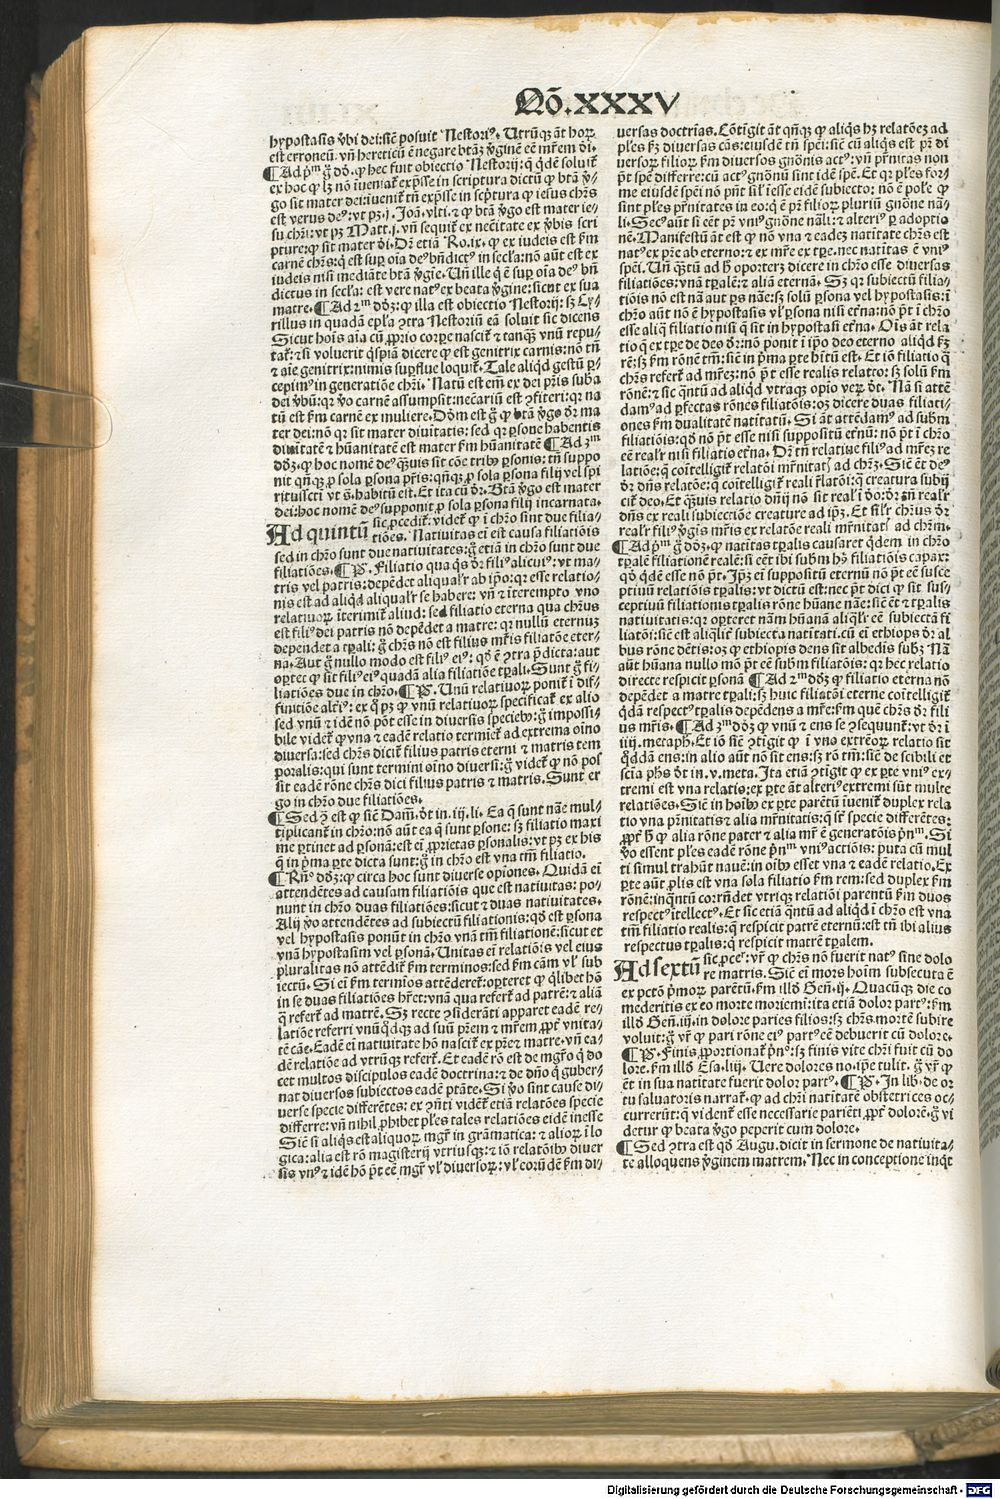 Qõ.XXXV
hypostasis v̆bi dei: sic̃ posuit Nestoriꝰ. Utrũqꝫ ãt hoꝝ
est erroneũ. vñ hereticũ ẽ negare btãꝫ v̆ginẽ eẽ mr̃em d̃i.
¶ Ad p̃ᵐ g̃ dõ. ꝙ hec fuit obiectio Nestorij: q̃ qdẽ soluit̃
ex hoc ꝙ lꝫ nõ iueniat̃ exp̃sse in scriptura dictũ ꝙ btã v̆r-
go sit mater dei: iuenit̃ tñ exp̃sse in scp̃tura ꝙ iesus chr̃s
est verus deꝰ: vt pꝫ .j. Joã. vlti. ⁊ ꝙ btã v̆go est mater ie-
su chri: vt pꝫ Matt. j. vñ sequit̃ ex necc̃itate ex v̆bis scri
pture: ꝙ sit mater d̃i. Dr̃ etiã Ro. ix. ꝙ ex iudeis est km̃
carnẽ chr̃s: q̃ est suꝑ oĩa deꝰ bñdictꝰ in secl̃a: nõ aũt est ex
iudeis nisi mediãte btã v̆gie. Uñ ille q̃ ẽ suꝑ oĩa deꝰ bñ
dictus in secl̃a: est vere natꝰ ex beata v̆gine: sicut ex sua
matre. ¶ Ad 2ᵐ dõꝫ: ꝙ illa est obiectio Nestorij: sꝫ Cy-
rillus in quadã epl̃a ꝯtra Nestoriũ eã soluit sic dicens
Sicut hoĩs aĩa cũ ꝓprio corꝑe nascit̃ ⁊ tanqꝫ vnũ repu-
tat̃: ⁊ si voluerit q̃spiã dicere ꝙ est genitrix carnis: nõ tñ
⁊ aĩe genitrix: nimis suꝑflue loquit̃. Tale aliqd gestũ ꝑ-
cepimꝰ in generatiõe chr̃i. Natũ est em̃ ex dei pr̃is suba
dei v̆bũ: qꝛ v̆o carnẽ assumpsit: necc̃ariũ est ꝯfiteri: qꝛ na
tũ est km̃ carnẽ ex muliere. Dõm est g̃ ꝙ btã v̆go dr̃ ma
ter dei: nõ qꝛ sit mater diuinitatis: sed qꝛ ꝑsone habentis
diuinitatẽ ⁊ hũanitatẽ est mater km̃ hũanitatẽ ¶ Ad 3ᵐ
dõꝫ. ꝙ hoc nomẽ deꝰ quis sit cõe tribꝰ ꝑsonis: tñ suppo
nit qñqꝫ ꝓ sola ꝑsona pr̃is: qñqꝫ ꝓ sola ꝑsona filij vel spi
ritussc̃ti vt s̃. habitũ est. Et ita cũ dr̃. Btã v̆go est mater
dei: hoc nomẽ deꝰ supponit ꝓ sola ꝑsona filij incarnata.
Ad quintũ sic ꝓcedit̃: videt̃ ꝙ ĩ chr̃o sint due filia-
tiões. Natiuitas ei est causa filiatiõis
sed in chr̃o sunt due natiuitates: g̃ etiã in chr̃o sunt due
filiatiões. ¶ P̃. Filiatio qua qs dr̃ filiꝰ alicuiꝰ: vt ma-
tris vel patris: depẽdet aliqual̃r ab ip̃o: qꝛ esse relatio-
nis est ad aliqd aliqual̃r se habere: vñ ⁊ iterempto vno
relatiuoꝝ iterimit̃ aliud: sed filiatio eterna qua chr̃us
est filiꝰ dei patris nõ depẽdet a matre: qꝛ nullũ eternuꝫ
dependet a tꝑali: g̃ chr̃s nõ est filius mr̃is filiatõe eter-
na. Aut g̃ nullo modo est filiꝰ eiꝰ: qd̃ ẽ ꝯtra p̃dicta: aut
oꝑtet ꝙ sit filiꝰ eiꝰ quadã alia filiatiõe tꝑali. Sunt g̃ fi-
liatiões due in chr̃o. ¶ P̃. Unũ relatiuoꝝ ponit̃ ĩ dif-
finitiõe alteriꝰ: ex q̃ pꝫ ꝙ vnũ relatiuoꝝ specificat̃ ex alio
sed vnũ ⁊ idẽ nõ põt esse in diuersis speciebꝰ: g̃ impossi-
bile videt̃ ꝙ vna ⁊ eadẽ relatio terminet̃ ad extrema oĩno
diuersa: sed chr̃s dicit̃ filius patris eterni ⁊ matris tem
poralis: qui sunt termini oĩno diuersi: g̃ videt̃ ꝙ nõ pos
sit eadẽ rõne chr̃s dici filius patris ⁊ matris. Sunt er
go in chr̃o due filiatiões.
¶ Sed ꝯ est ꝙ sic̃ Dam̃. dt̃ in .iij. li. Ea q̃ sunt nãe mul-
tiplicant̃ in chr̃o: nõ aũt ea q̃ sunt ꝑsone: sꝫ filiatio maxi
me ꝑtinet ad ꝑsonã: est ei ꝓprietas ꝑsonalis: vt pꝫ ex his
q̃ in p̃ma ꝑte dicta sunt: g̃ in chr̃o est vna tm̃ filiatio.
¶ Rñº dõꝫ: ꝙ circa hoc sunt diuerse opiões. Quidã ei
attendẽtes ad causam filiatiõis que est natiuitas: po-
nunt in chr̃o duas filiatiões: sicut ⁊ duas natiuitates.
Alij v̆o attendẽtes ad subiectũ filiationis: qd̃ est ꝑsona
vel hypostasis ponũt in chr̃o vnã tm̃ filiationẽ: sicut et
vnã hypostasim vel ꝑsonã. Unitas ei relatiõis vel eius
pluralitas nõ attẽdit̃ km̃ terminos: sed km̃ cãm vl̃ sub
iectũ. Si ei km̃ termĩos attẽderet̃: oꝑteret ꝙ q̃libet hõ
in se duas filiatiões hr̃et: vnã qua refert̃ ad patrẽ: ⁊ aliã
q̃ refert̃ ad matrẽ. Sꝫ recte ꝯsiderãti apparet eadẽ re-
latiõe referri vnũqdqꝫ ad suũ pr̃em ⁊ mr̃em ꝓpt̃ vnita-
tẽ cãe. Eadẽ ei natiuitate hõ nascit̃ ex pr̃e ⁊ matre. vñ ea-
dẽ relatiõe ad vtrũqꝫ refert̃. Et eadẽ rõ est de mgr̃o q̃ do
cet multos discipulos eadẽ doctrina: ⁊ de dño q̃ guber-
nat diuersos subiectos eadẽ ptãte. Si v̆o sint cause di-
uerse specie differẽtes: ex ꝯñti vident̃ etiã relatões specie
differre: vñ nihil ꝓhibet pl̃es tales relatiões eidẽ inesse
Sic̃ si aliqs est alioꝝ mgr̃ in grãmatica: ⁊ alioꝝ ĩ lo
gica: alia est rõ magisterij vtriusqꝫ: ⁊ iõ relatõibꝰ diuer
sis vnꝰ ⁊ idẽ hõ p̃t eẽ mgr̃ vl̃ diuersoꝝ: vl̃ eorũdẽ km̃ di-
uersas doctrĩas. Cõtĩgit ãt qñqꝫ ꝙ aliqs hꝫ relatõeꝫ ad
pl̃es kꝫ diuersas cãs: eiusdẽ tñ spẽi: sic̃ cũ aliqs est pr̃ di
uersoꝝ filioꝝ km̃ diuersos gñõnis actꝰ: vñ pr̃nitas non
p̃t spẽ differre: cũ actꝰ gñõnũ sint idẽ spẽ. Et qꝛ pl̃es for-
me eiusdẽ spẽi nõ pñt sil̃ iesse eidẽ subiecto: nõ ẽ pole ꝙ
sint pl̃es pr̃nitates in eo: q̃ ẽ pr̃ filioꝝ pluriũ gñõne nã-
li. Secꝰ aũt si eẽt pr̃ vniꝰ gñõne nãli: ⁊ alteriꝰ ꝑ adoptio
nẽ. Manifestũ ãt est ꝙ nõ vna ⁊ eadeꝫ natiũtate chr̃s est
natꝰ ex pr̃e ab eterno: ⁊ ex mr̃e ex tꝑe. nec natiũtas ẽ vniꝰ
spẽi. Uñ q̃tũ ad h̃ oporteꝫ dicere in chr̃o esse diuersas
filiatiões: vnã tꝑalẽ: ⁊ aliã eternã. Sꝫ qꝛ subiectũ filia-
tiõis nõ est nã aut ꝑs nãe: sꝫ solũ ꝑsona vel hypostasis: ĩ
chr̃o aũt nõ ẽ hypostasis vl̃ ꝑsona nisi et̃na: nõ p̃t ĩ chr̃o
esse aliq̃ filiatio nisi q̃ sit in hypostasi et̃na. Oĩs ãt rela
tio q̃ ex tꝑe de deo dr̃: nõ ponit ĩ ip̃o deo eterno aliqd kꝫ
rẽ: sꝫ km̃ rõnẽ tm̃: sic̃ in p̃ma ꝑte h̃itũ est. Et iõ filiatio q̃
chr̃s refert̃ ad mr̃eꝫ: nõ p̃t esse realis relatio: sꝫ solũ km̃
rõnẽ: ⁊ sic q̃ntũ ad aliqd vtraqꝫ opio veꝝ dt̃. Nã si attẽ
damꝰ ad ꝑfectas rõnes filiatõis: oꝫ dicere duas filiati-
ones km̃ dualitatẽ natiũtatũ. Si ãt attẽdamꝰ ad subm̃
filiatiõis: qd̃ nõ p̃t esse nisi suppositũ et̃nũ: nõ p̃t ĩ chr̃o
eẽ real̃r nisi filiatio et̃na. Dr̃ tñ relatiue filiꝰ ad mr̃eꝫ re
latiõe: q̃ coĩtelligit̃ relatõi mr̃nitatꝰ ad chr̃ꝫ. Sic̃ ẽt deꝰ
dr̃ dñs relatõe: q̃ coĩtelligit̃ reali r̃latõi: q̃ creatura subij
cit̃ deo. Et qꝫuis relatio dñij nõ sit real̃ ĩ d̃o: dr̃ tñ real̃r
dñs ex reali subiectiõe creature ad ip̃ꝫ. Et sil̃r chr̃us dr̃
real̃r filiꝰ v̆gis mr̃is ex relatõe reali mr̃nitatꝰ ad chr̃m.
¶ Ad p̃ᵐ g̃ dõꝫ. ꝙ natiũtas tꝑalis causaret qdem in chr̃o
tꝑalẽ filiationẽ realẽ: si eẽt ibi subm̃ hꝰ filiatiõis capax:
qd̃ qdẽ esse nõ p̃t. Ip̃ꝫ ei suppositũ eternũ nõ p̃t eẽ susce
ptiuũ relatiõis tꝑalis: vt dictũ est: nec p̃t dici ꝙ sit sus-
ceptiuũ filiationis tꝑalis rõne hũane nãe: sic̃ ẽt ⁊ tꝑalis
natiuitatis: qꝛ oꝑteret nãm hũanã aliql̃r eẽ subiectã fi
liatõi: sic̃ est aliql̃r subiecta natiũtati. cũ ei ethiops dr̃ al
bus rõne dẽtis: oꝫ ꝙ ethiopis dens sit albedis subꝫ. Nã
aũt hũana nullo mõ p̃t eẽ subm̃ filiatõis: qꝛ hec relatio
directe respicit ꝑsonã ¶ Ad 2ᵐ dõꝫ ꝙ filiatio eterna nõ
depẽdet a matre tꝑali: sꝫ huic filiatõi eterne coĩtelligit̃
q̃dã respectꝰ tꝑalis depẽdens a mr̃e: km̃ quẽ chr̃s dr̃ fili
us mr̃is. ¶ Ad 3ᵐ dõꝫ ꝙ vnũ ⁊ ens se ꝯsequunt̃: vt dr̃ ĩ
iiij. metaph̃. Et iõ sic̃ ꝯtĩgit ꝙ ĩ vno extrẽoꝝ relatio sit
q̃ddã ens: in alio aũt nõ sit ens: sꝫ rõ tm̃: sic̃ de scibili et
scĩa ph̃s dt̃ in .v. meta. Ita etiã ꝯtĩgit ꝙ ex ꝑte vniꝰ ex-
tremi est vna relatio: ex ꝑte ãt alteriꝰ extremi sũt multe
relatiões. Sic̃ in hoĩbꝰ ex ꝑte parẽtũ iuenit̃ duplex rela
tio vna pr̃nitatis: ⁊ alia mr̃nitatis: q̃ st̃ specie differẽtes:
ꝓpt̃ h̃ ꝙ alia rõne pater ⁊ alia mr̃ ẽ generatõis pñᵐ. Si
v̆o essent pl̃es eadẽ rõne p̃nᵐ vniꝰ actiõis: puta cũ mul
ti simul trahũt nauẽ: in oĩbꝰ esset vna ⁊ eadẽ relatio. Ex
ꝑte aũt ꝓlis est vna sola filiatio km̃ rem: sed duplex km̃
rõnẽ: inq̃ntũ co: rñdet vtriqꝫ relatiõi parentũ km̃ duos
respectꝰ ĩtellectꝰ. Et sic etiã q̃ntũ ad aliqd ĩ chr̃o est vna
tm̃ filiatio realis: q̃ respicit patrẽ eternũ: est tñ ibi alius
respectus tꝑalis: q̃ respicit matrẽ tꝑalem.
Ad sextũ sic ꝓceꝰ. vr̃ ꝙ chr̃s nõ fuerit natꝰ sine dolo
re matris. Sic̃ ei mors hoĩm subsecuta ẽ
ex pctõ p̃moꝝ parẽtũ. km̃ illd̃ Geñ. ij. Quacũqꝫ die co
mederitis ex eo morte moriemĩ: ita etiã dolor partꝰ: km̃
illd̃ Geñ. iij. in dolore paries filios: sꝫ chr̃s mortẽ subire
voluit: g̃ vr̃ ꝙ pari rõne eiꝰ partꝰ eẽ debuerit cũ dolore.
¶ P̃. Finis ꝓportionat̃ p̃nº: sꝫ finis vite chr̃i fuit cũ do
lore. km̃ illd̃ Esa. liij. Uere dolores no. ip̃e tulit. g̃ vr̃ ꝙ
ẽt in sua natiũtate fuerit dolor partꝰ. ¶ P̃. In lib̃. de or
tu saluatoris narrat̃. ꝙ ad chr̃i natiũtatẽ obstetrices oc-
currerũt: q̃ vident̃ esse necessarie pariẽti ꝓpt̃ dolorẽ. g̃ vi
detur ꝙ beata v̆go peperit cum dolore.
¶ Sed ꝯtra est qd̃ Augu. dicit in sermone de natiuita-
te alloquens v̆ginem matrem. Nec in conceptione inq̃t
Digitalisierung gefördert durch die Deutsche Forschungsgemeinschaft - DFG